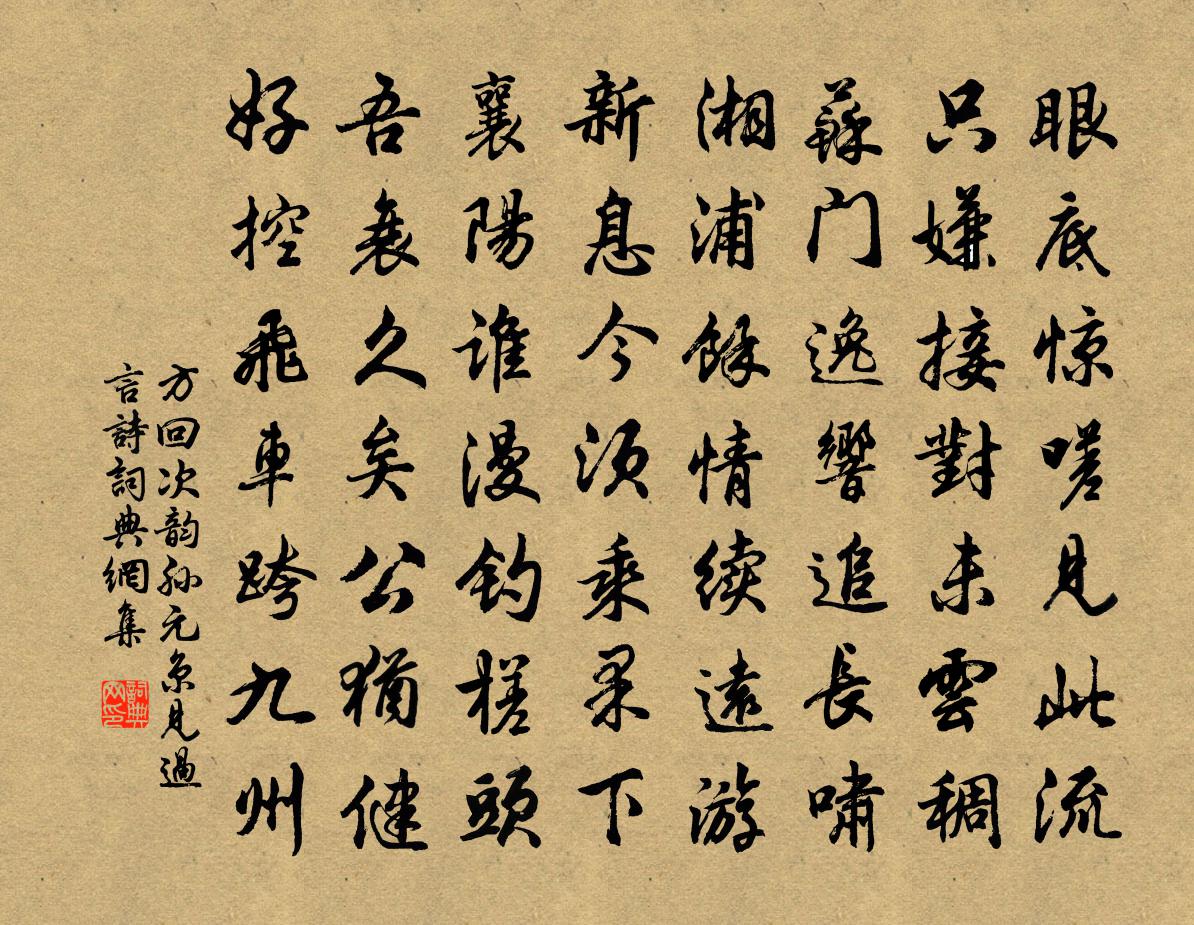 眼底惊嗟见此流
只嫌接對未雲稠
蘇门逸響追長嘯
湘浦餘情续遠游
新息今须乘果下
襄陽谁漫钓槎頭
吾衰久矣公猶健
好控飛車跨九州
方回次韵孙元京见過
言詩詞典網集
詞典网印